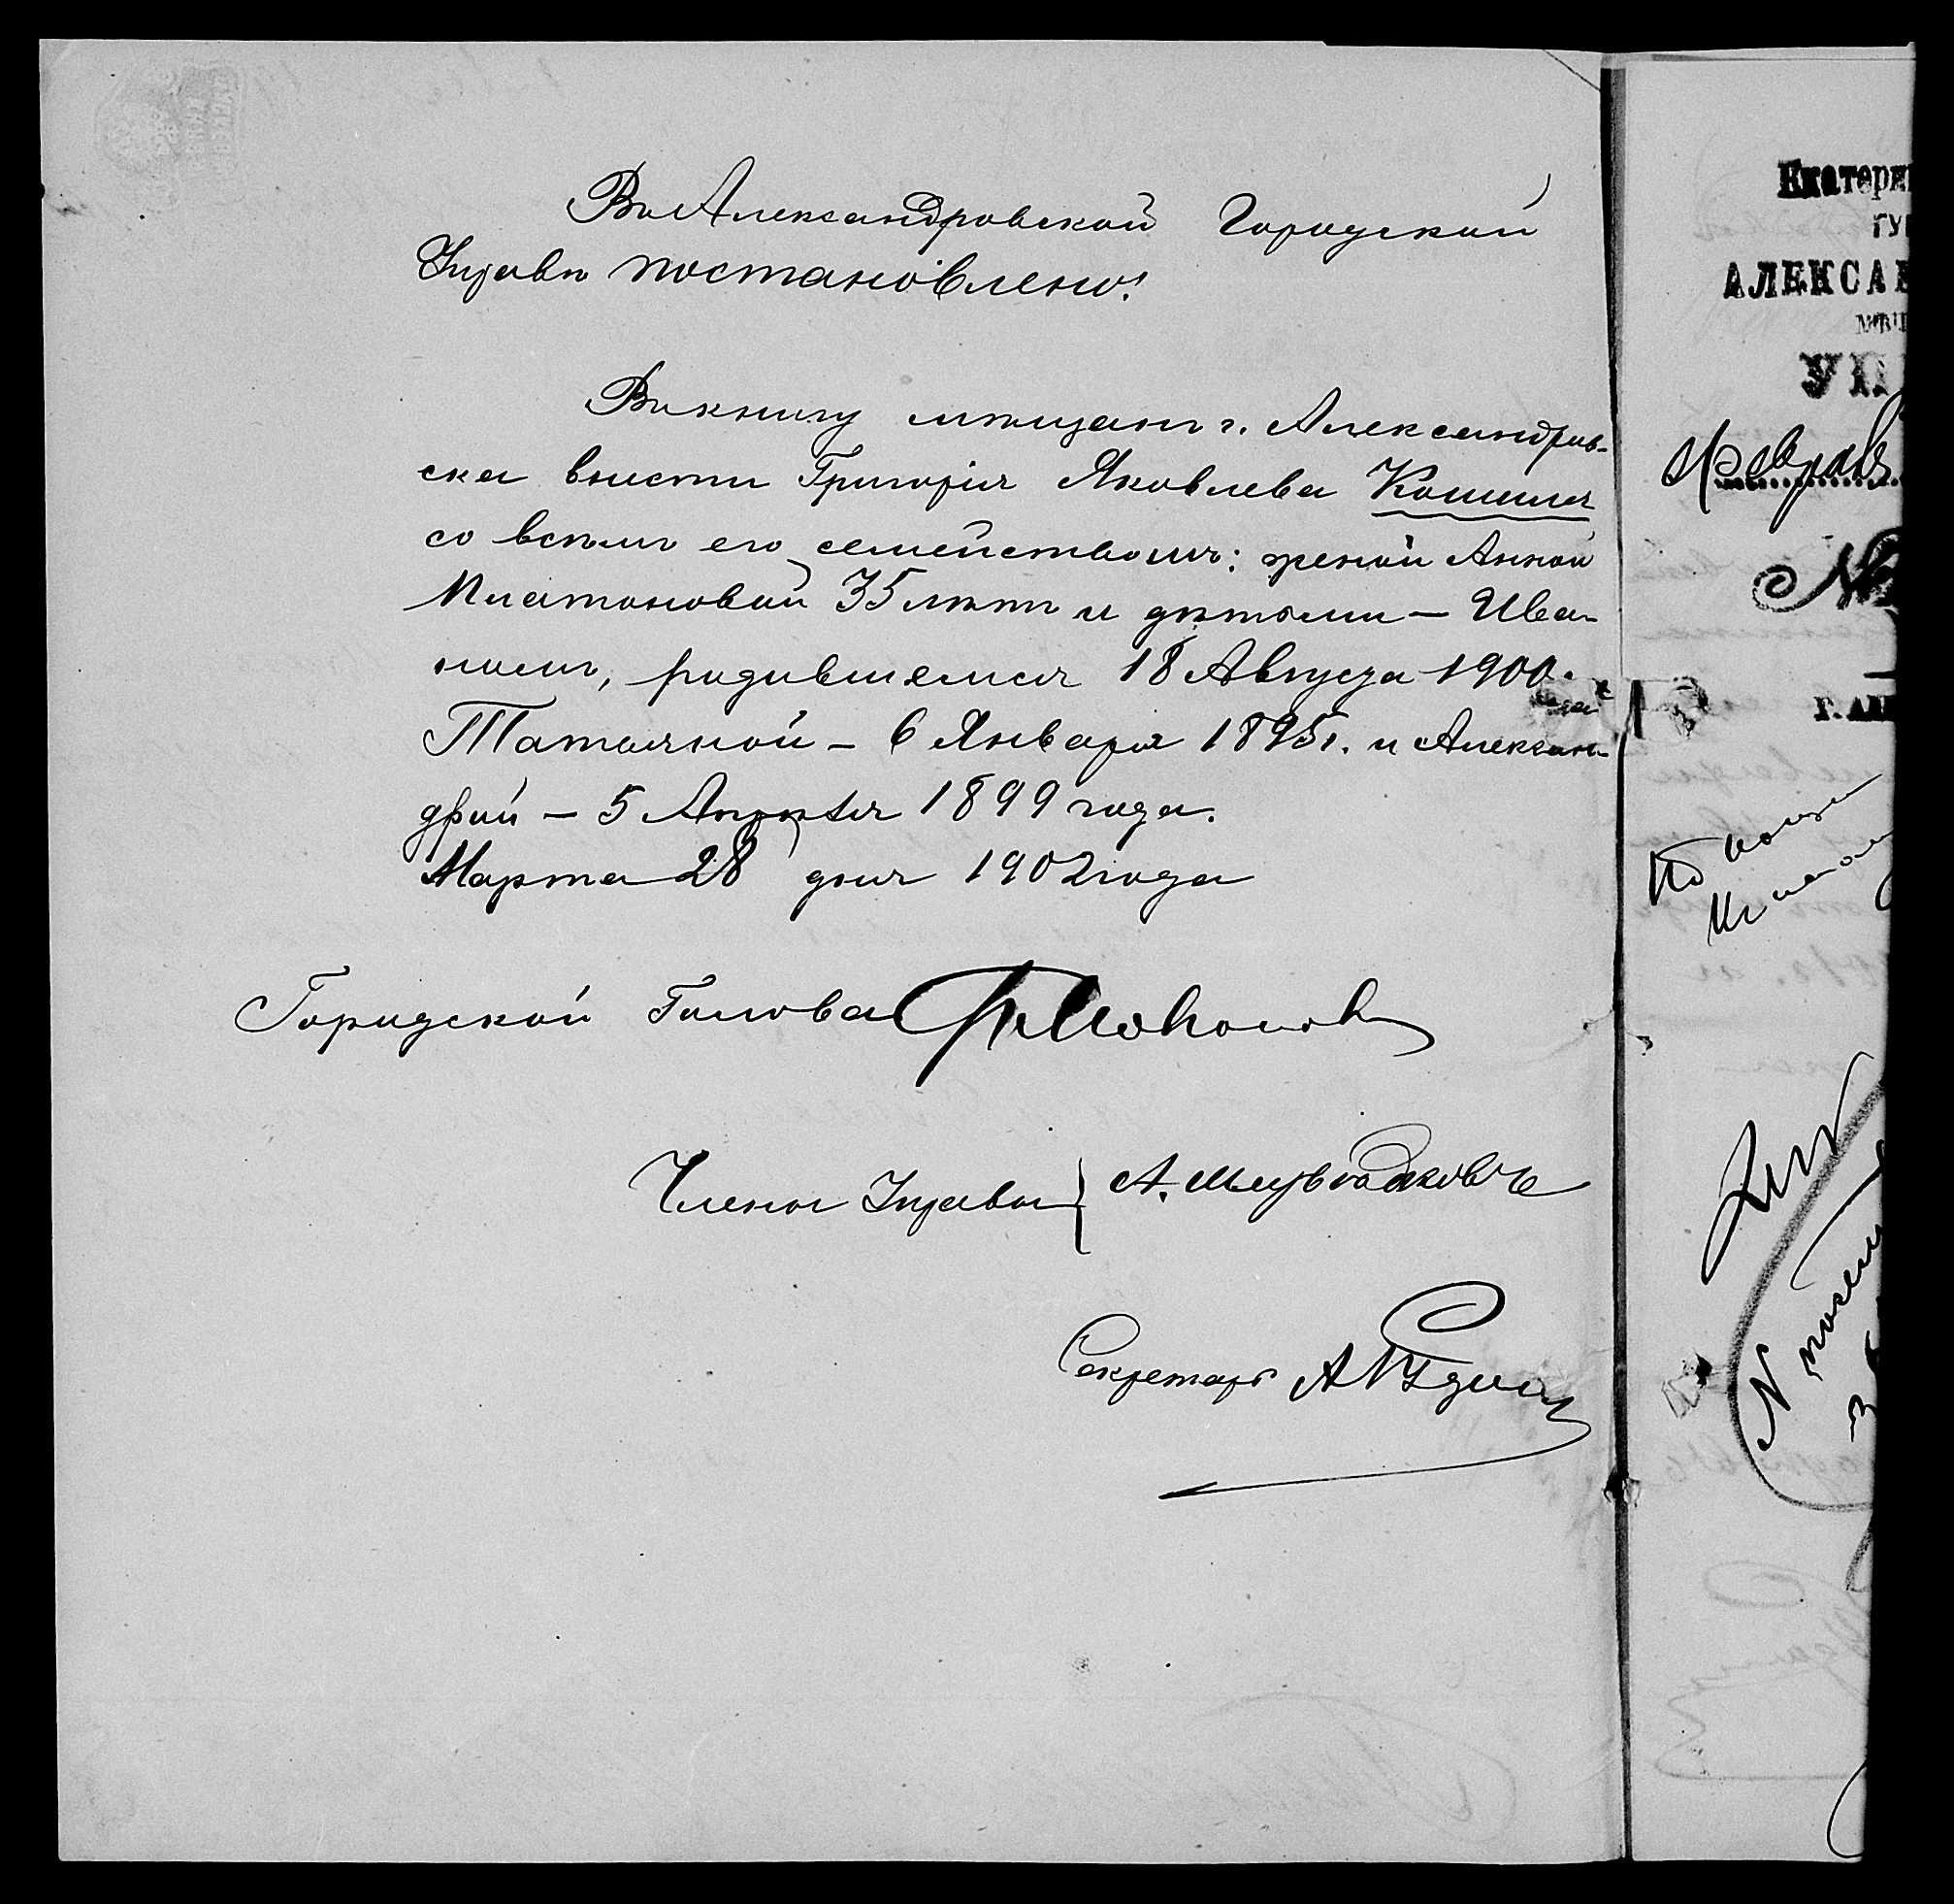 Въ Александровской Городской
Управѣ постановлено:
Въ книгу мѣщанъ г. Александров-
ска внести Григорія Яковлева Кошиля
со всѣмъ его семействомъ: женой Анной
Платоновой 35 лѣтъ и дѣтьми – Ива-
номъ, родившемся 18 Августа 1900
года
Татьяной – 6 Января 1895 г. и Алексан-
дрой – 5 Апрѣля 1899 года.
Марта 28 дня 1902 года
Городской Голова
Члены Управы
Секретарь
Екатери
ГУ
АЛЕКСА
УП
Февраля
№
Г. АЛ